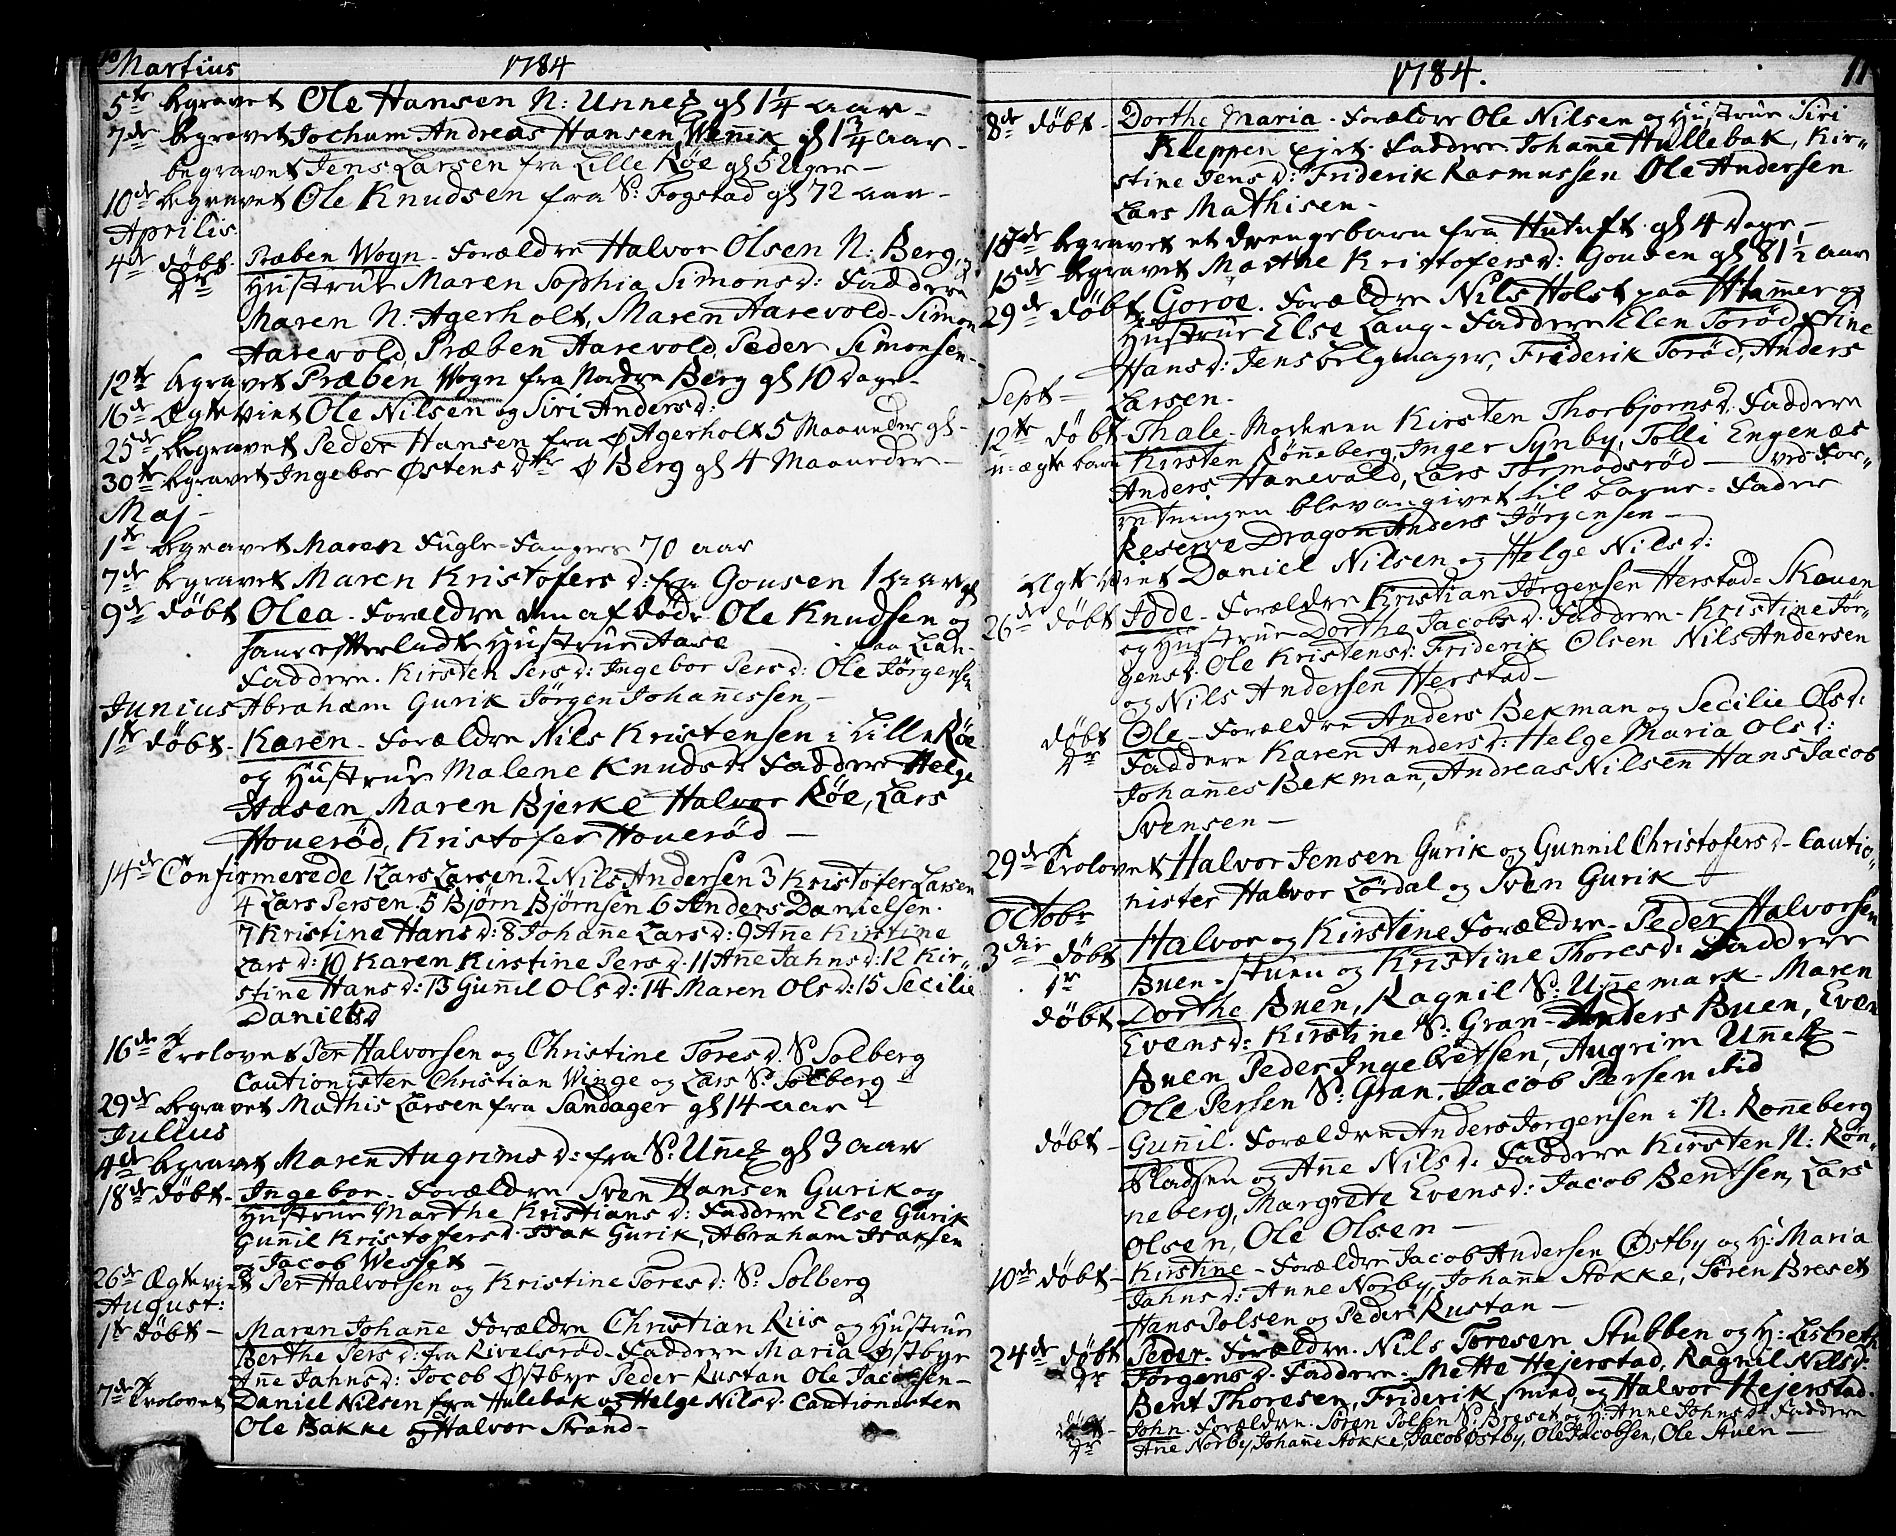 10 Martius 1784
5te begravet Ole Hansen N: Unneb gl 1 1/4 aar -
7de begravet Jochum Andreas Hansen Wenik gl 1 3/4 aar -
begravet Jens Larsen fra Lille Røe gl 5 Uger -
10de begravet Ole Knudsen fra S: Togstad gl 72 aar -
Aprilis
4de døbt Præben Wogn - Forældre Halvor Olsen N: Berg, og
Hustrue Maren Sophia Simonsd: Faddere
Maren N. Agerholt, Maren Aarevold - Simon
Aarevold, Præben Aarevold, Peder Simonsen -
12te begravet Præben Wogn fra Nordre Berg gl 10 Dage -
16de Ægteviet Ole Nilsen og Siri Andersd:
25de begravet Peder Hansen fra Ø Agerholt 5 Maaneder gl -
30te begravet Ingebor Østensdtr Ø Berg gl 4 Maaneder -
Maj -
1te begravet Maren Fugle-Fangers 70 aar
7de begravet Maren Kristofersd: fra Gousen 1 aar gl
9de døbt Olea - Forældre den afdøde Ole Knudsen og
hans efterladte Hustrue Aase paa Lian -
Faddere. Kirsten Persd: Ingebor Persd: Ole Jørgensen
Junius Abraham Gurik Jørgen Johannessen -
1te døbt - Karen - Forældre Nils Kristensen i Lille Røe
og Hustrue Malene Knudsd: Faddere Helge
Aasen, Maren Bjerke Halvor Røe, Lars
Houerød, Kristofer Houerød -
14de Confirmerede 1 Lars Larsen. 2 Nils Andersen 3 Kristofer Larsen
4 Lars Persen. 5 Bjørn Bjørnsen 6 Anders Danielsen.
7 Kristine Hansd: 8 Johanne Larsd: 9 Anne Kirstine
Larsd: 10 Karen Kirstine Persd: 11 Anne Jahnsd: 12 Kir-
stine Hansd: 13 Gunnil Olsd: 14 Maren Olsd: 15 Secilie
Danielsd
16de Trolovet Per Halvorsen og Christine Toresd. S. Solberg
Cautionister Christian Winge og Lars S. Solberg
29de begravet Mathis Larsen fra Sandager gl 14 aar
Julius
4de begravet Maren Augrimsd: fra S: Unneb gl 3 aar
18de døbt - Ingebor - Forældre Sven Hansen Gurik og
Hustrue Marthe Kristiansd: Faddere Else Gurik
Gunnil Kristofersd. Isak Gurik, Abraham Isaksen
og Jacob Wesset -
26de Ægteviet Per Halvorsen og Kristine Toresd: S: Solberg
August:
1te døbt - Maren Johanne Forældre Christian Riis og Hustrue
Berthe Persd: fra Rivelsrød - Faddere Maria Østbye
Anne Jahnsd: Jocob Østbye Peder Rustan Ole Jacobsen -
7de Trolovet Daniel Nilsen fra Hulebak og Helge Nilsd. Cautionisten
Ole Bakke og Halvor Strand -
1784. 11
8de døbt - Dorthe Maria - Forældre Ole Nilsen og Hustrue Siri
Kleppen ejet. Faddere Johanne Hullebak, Kir-
stine Jensd: Friderik Rasmussen Ole Andersen
Lars Mathisen -
begravet et drengebarn fra Hutuft gl 4 Dage,
15de begravet Marthe Kristofersd: Gousen gl 81 1/2 aar
29de døbt Goroe. Forældre Nils Holst paa Hammer og
Hustrue Else Laug - Faddere Elen Torød, Stine
Hansd: Jens belgmager, Friderik Torød, Anders
Sept - Larsen -
12te døbt Thale - Moderen Kirsten Thorbjornsd. Faddere
u-ægte barn Kirsten Rønneberg, Inger Synby, Tolli Engenæs
Anders Hanevold, Lars Tormodsrød - ved For-
retningen blev angivet til Barne-Fader
Reserve Dragon Anders Jørgensen -
Ægteviet Daniel Nilsen og Helge Nilsd:
26de døbt Jode - Forældre Kristian Jørgensen Herstad-Skouen
og Hustrue Dorthe Jacobsd. Faddere - Kristine Jør-
gensd. Ole Kristensd: Friderik Olsen Nils Andersen
og Nils Andersen Herstad -
døbt Ole - Forældre Anders Bekman og Secilie Olsd:
dr Faddere Karen Andersd: Helge Maria Olsd:
Johannes Bekman, Andreas Nilsen Hans Jacob
Svensen -
29de Trolovet Halvor Jensen Gurik og Gunnil Christofersd - Cautio-
nister Halvor Lørdal og Sven Gurik -
Octobr
3die døbt Halvor og Kirstine Forældre - Peder Halvorsen
Buen-stuen og Kristine Thoresd: Faddere
døbt Dorthe Buen, Ragnil S: Unnemark - Maren
Evensd: Kirstine S: Gran - Anders Buen, Even
Buen Peder Ingebretsen, Augrim Unneb -
Ole Persen S: Gran. Jacob Persen
døbt - Gunnil. Forældre Anders Jørgensen i N: Ronneberg
Pladsen og Anne Nilsd. Faddere Kirsten N: Røn-
neberg, Margrete Evensd: Jacob Bentsen, Lars
Olsen, Ole Olsen -
10de døbt - Kirstine - Forældre Jacob Andersen Østby og H: Maria
Jahnsd: Anne Norby, Johanne Stokke, Søren Breset
Hans Polsen og Peder Rustan -
24de døbt Peder - Forældre. Nils Toresen Stubben og H: Lisbeth
dr Jørgensd. Faddere - Mette Hejerstad, Ragnil Nilsd:
Bent Thoresen, Friderik smed, og Halvor Hejerstad.
døbt - John - Forældre. Søren Polsen S: Breset og H: Anne Johnsd: Faddere
dr Anne Norby, Johanne Stokke, Jacob Østby, Ole Jacobsen, Ole Stuen -